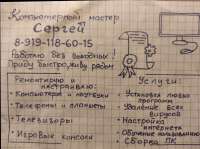 Компьютерный мастер
Сергей
8-919-118-60-15
Работаю без выходных!
Приду быстро, живу рядом
Ремонтирую и
настраиваю:
• Компьютеры и ноутбуки
• Телефоны и планшеты
• Телевизоры
• Игровые консоли
Услуги:
• Установка любых
программ
• Удаление всех
вирусов
• Настройка
интернета
• Обучение пользованию
• Сборка ПК